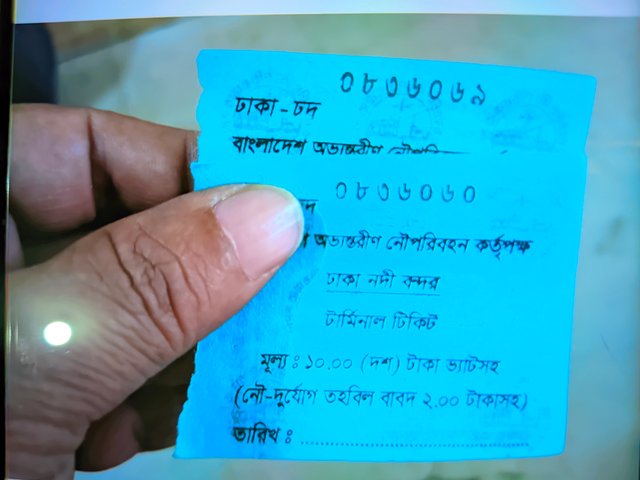 ০৮৩৬০৬৯
ঢাকা - ঢদ
বাংলাদেশ অভ্যন্তরীণ
০৮৩৬০৬০
অভ্যন্তরীণ নৌপরিবহন কর্তৃপক্ষ
ঢাকা নদী বন্দর
টার্মিনাল টিকিট
মূল্য : ১০.০০ (দশ) টাকা ভ্যাটসহ
(নৌ-দুর্যোগ তহবিল বাবদ ২.০০ টাকাসহ)
তারিখ :